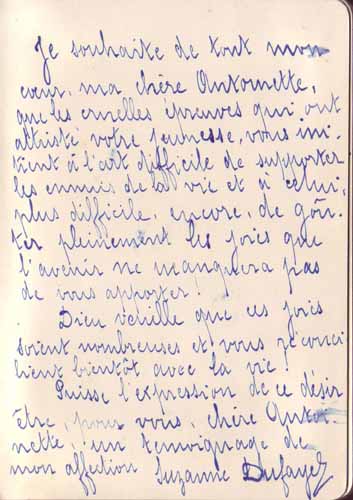 Je souhaite de tout mon
cœur, ma chère Antoinette,
que les cruelles épreuves qui ont
attristé votre jeunesse, vous ini-
tient à l'art difficile de supporter
les ennuis de la vie et à celui,
plus difficile, encore, de goû-
ter pleinement les joies que
l'avenir ne manquera pas
de vous apporter!
Dieu veuille que ces joies
soient nombreuses et vous réconci
lient bientôt avec la vie!
Puisse l'expression de ce désir
être, pour vous, chère Antoi-
nette, un témoignage de
mon affection Suzanne Dufayez